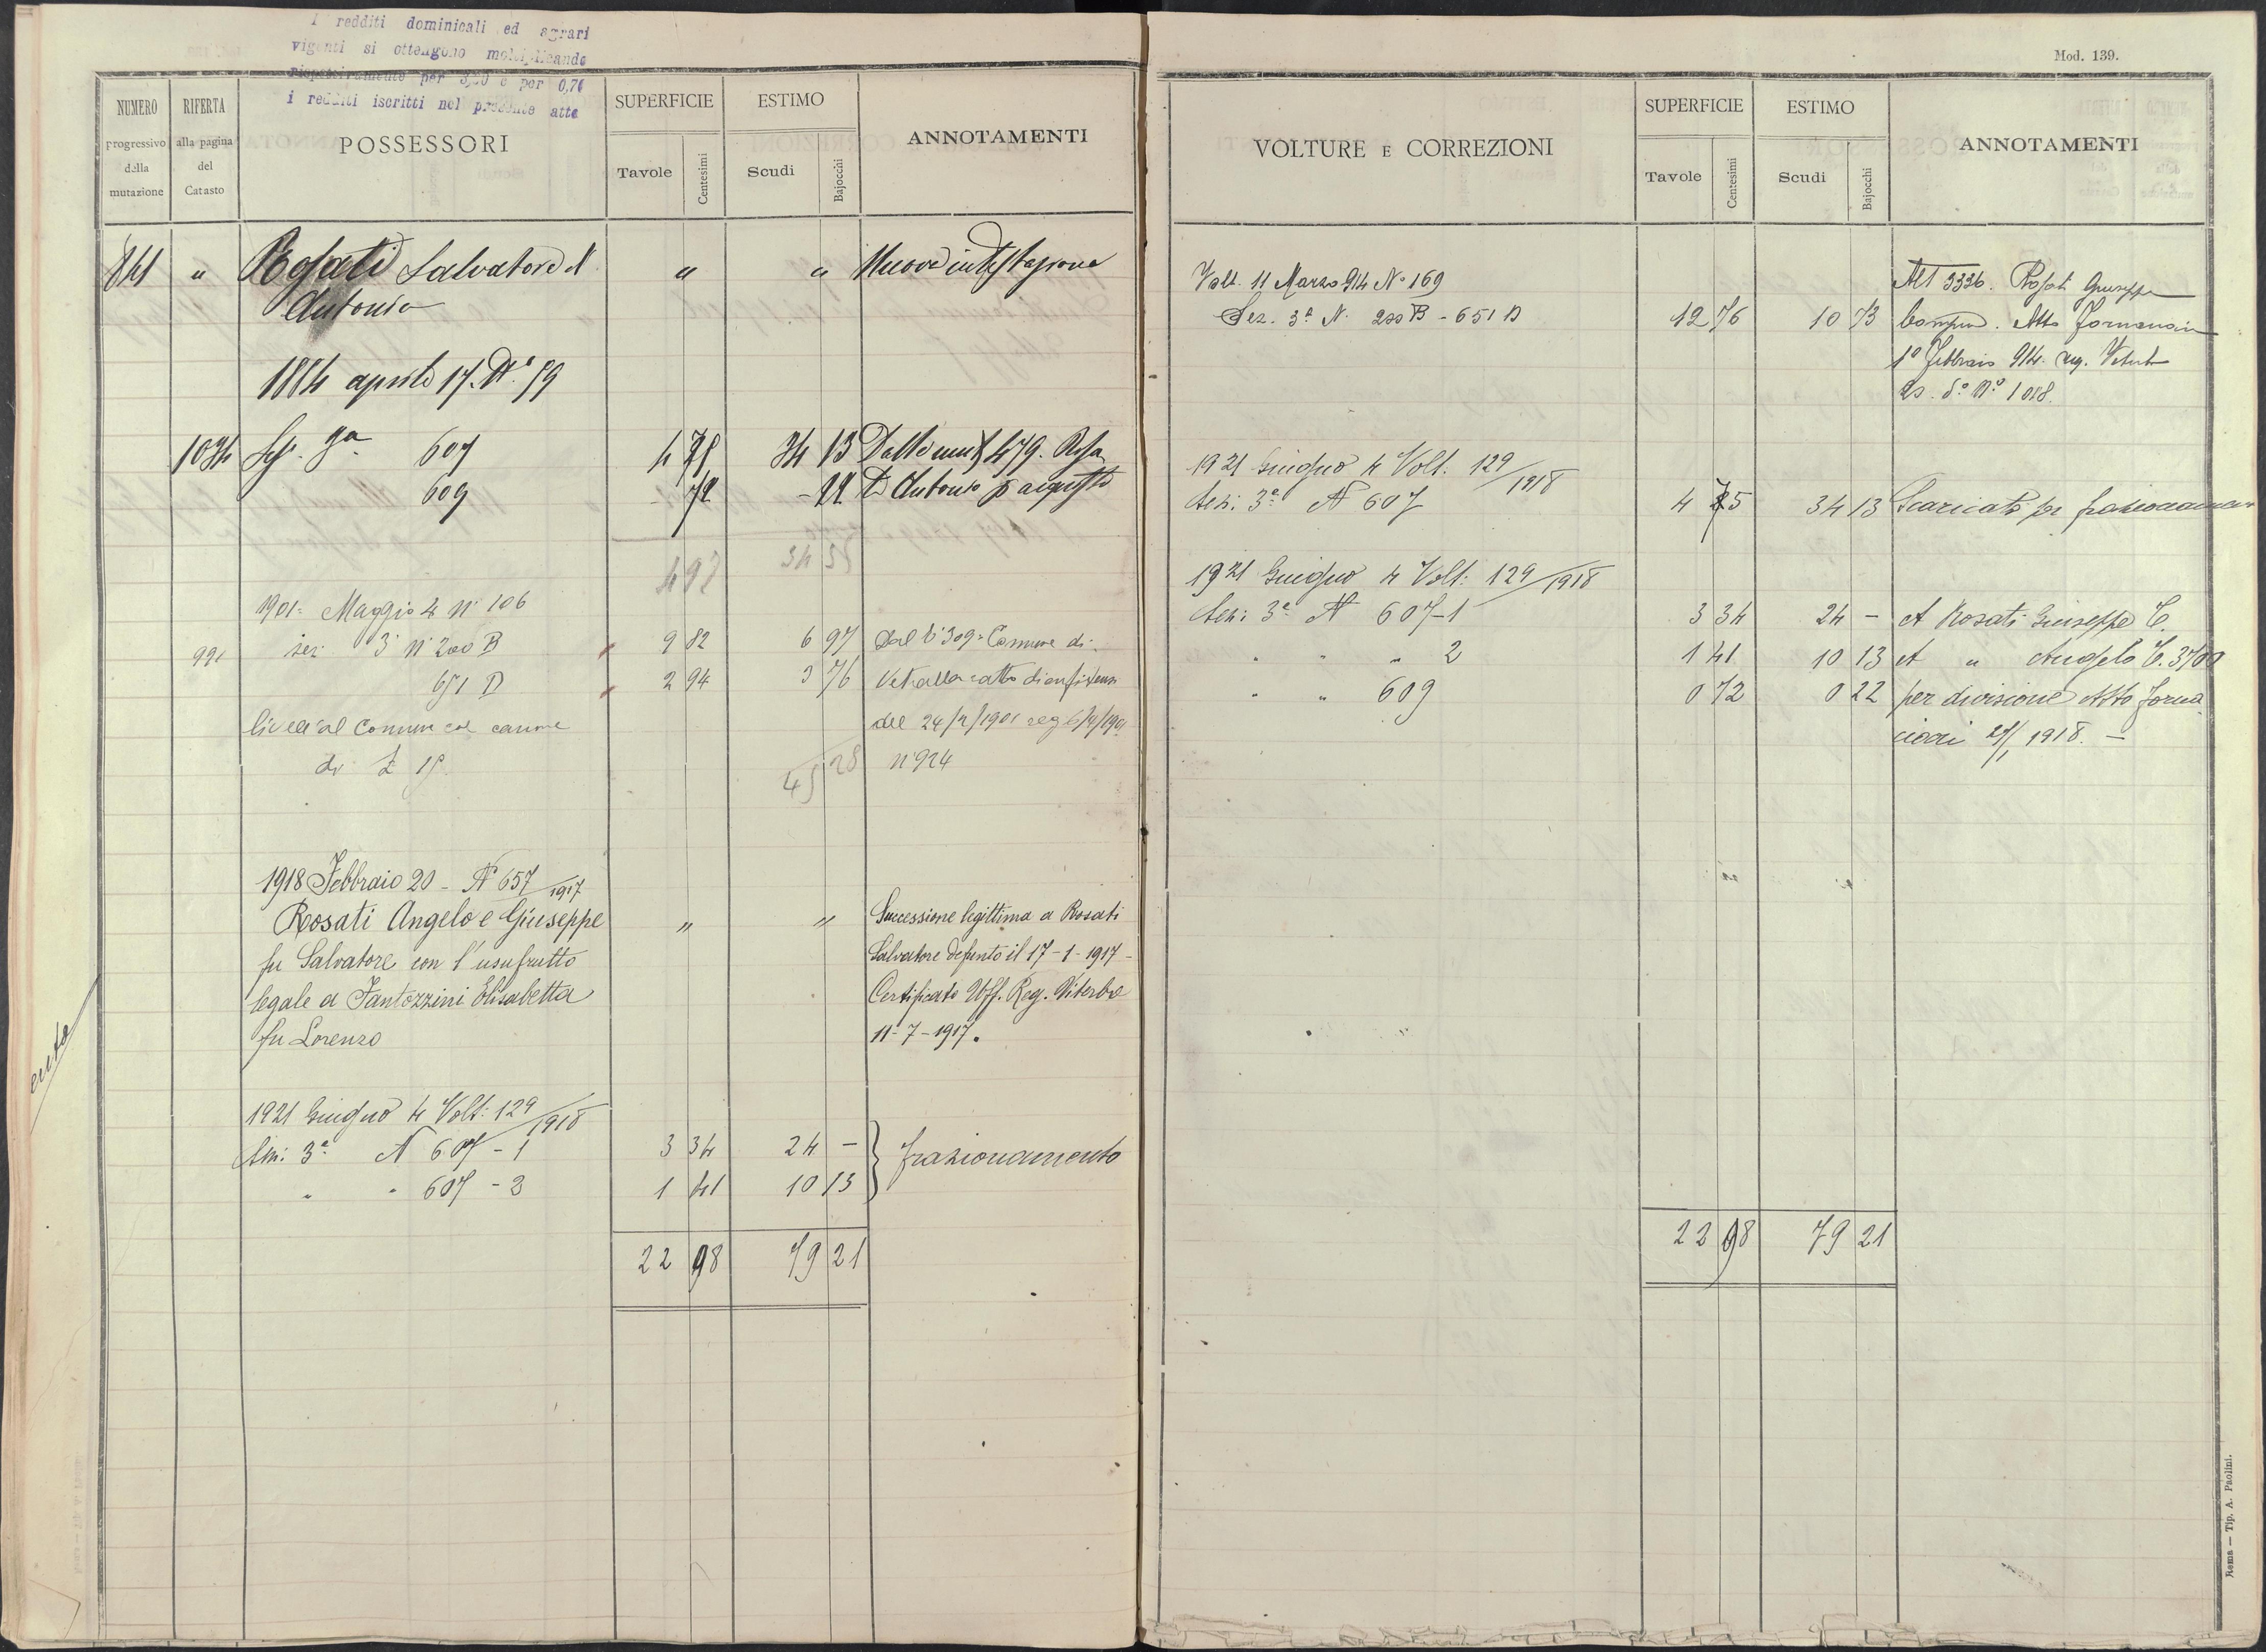 I redditi dominicali ed agrari
vigenti si ottengono moltiplicando
rispettivamente per 3,20 e per 0,70
i redditi iscritti nel presente atto
NUMERO
progressivo
della
mutazione
RIFERTA
alla pagina
del
Catasto
POSSESSORI
SUPERFICIE
Tavole
Centesimi
ESTIMO
Scudi
Bajocchi
ANNOTAMENTI
841 " Rosati Salvatore di " " Nuova intestazione
Antonio
1884 aprile 17. N.° 59
1034 Sez. 3a 607 4 75 34 13 Dalla 479. Rosa
609 - 72 - 22 ti Antonio p acquisto
497 34 35
1901. Maggio 4 N. 106
991 sez. 3 N. 200 B 9 82 6 97 Dal 309. Comune di
651 D 2 94 3 76 Vetralla atto di
del 24/2/1901 reg
al Comune
di £ N. 924
45 28
1918 Febbraio 20 - N 657/1917
Rosati Angelo e Giuseppe " " Successione legittima a Rosati
fu Salvatore con l'usufrutto Salvatore defunto il 17-1-1917 -
legale a Fantozzini Elisabetta Certificato Uff. Reg. Viterbo
fu Lorenzo 11-7-1917.
1921 Giugno 4 Volt: 129/1918
Sez: 3a N 607 - 1 3 34 24 -
" " 607 - 2 1 41 10 13
frazionamento
22 98 79 21
Mod. 139.
VOLTURE E CORREZIONI
SUPERFICIE
Tavole
Centesimi
ESTIMO
Scudi
Bajocchi
ANNOTAMENTI
Volt. 11 Marzo 914 N.o 169 Art 3326. Rosati Giuseppe
Sez. 3a N. 200 B - 651 D 12 76 10 73 Compra. Atto Fornaciari
1° Febbraio 914. reg. Vetralla
20. d.o N.o 1088.
1921 Giugno 4 Volt. 129/1918
Sez: 3a N 607 4 75 34 13 Scaricato per frazionamento
1921 Giugno 4 Volt: 129/1918
Sez: 3a N 607-1 3 34 24 - A Rosati Giuseppe C.
" " " 2 1 41 10 13 A " Angelo C. 3700
" " 609 0 72 0 22 per divisione Atto Forna
ciari 1918. -
22 98 79 21
Roma — Tip. A. Paolini.